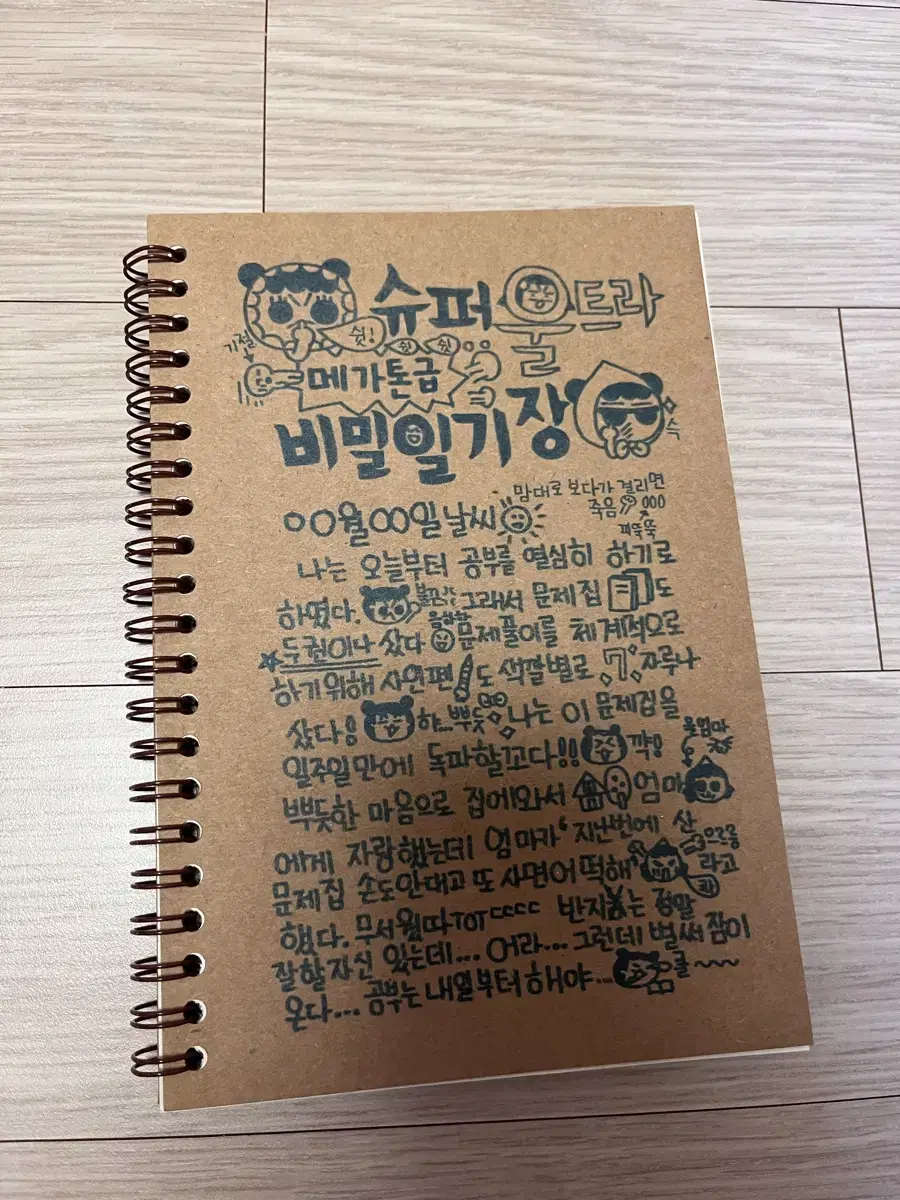 슈퍼울트라
쉿!
쉿 쉿
기절
메가톤급
비밀일기장
슥
맘대로 보다가 걸리면
죽음 000
피뚝뚝
00월00일 날씨
나는 오늘부터 공부를 열심히 하기로
하였다. 불끈 그래서 문제집 도
두권이나 샀다 문제풀이를 체계적으로
하기위해 사인펜도 색깔별로 7자루나
샀다!! 하.. 뿌듯 나는 이 문제집을
일주일만에 독파할꼬다!! 꺅!!
울엄마
뿌듯한 마음으로 집에와서 엄마
에게 자랑했는데 엄마가 '지난번에 산
으르릉
문제집 손도안대고 또 사면어떡해' 라고
했다. 무서웠따ㅜㅇㅜㄷㄷㄷㄷ 반지는 정말
잘할자신 있는데... 어라... 그런데 벌써 잠이
온다... 공부는 내일부터 해야... 쿨~~~